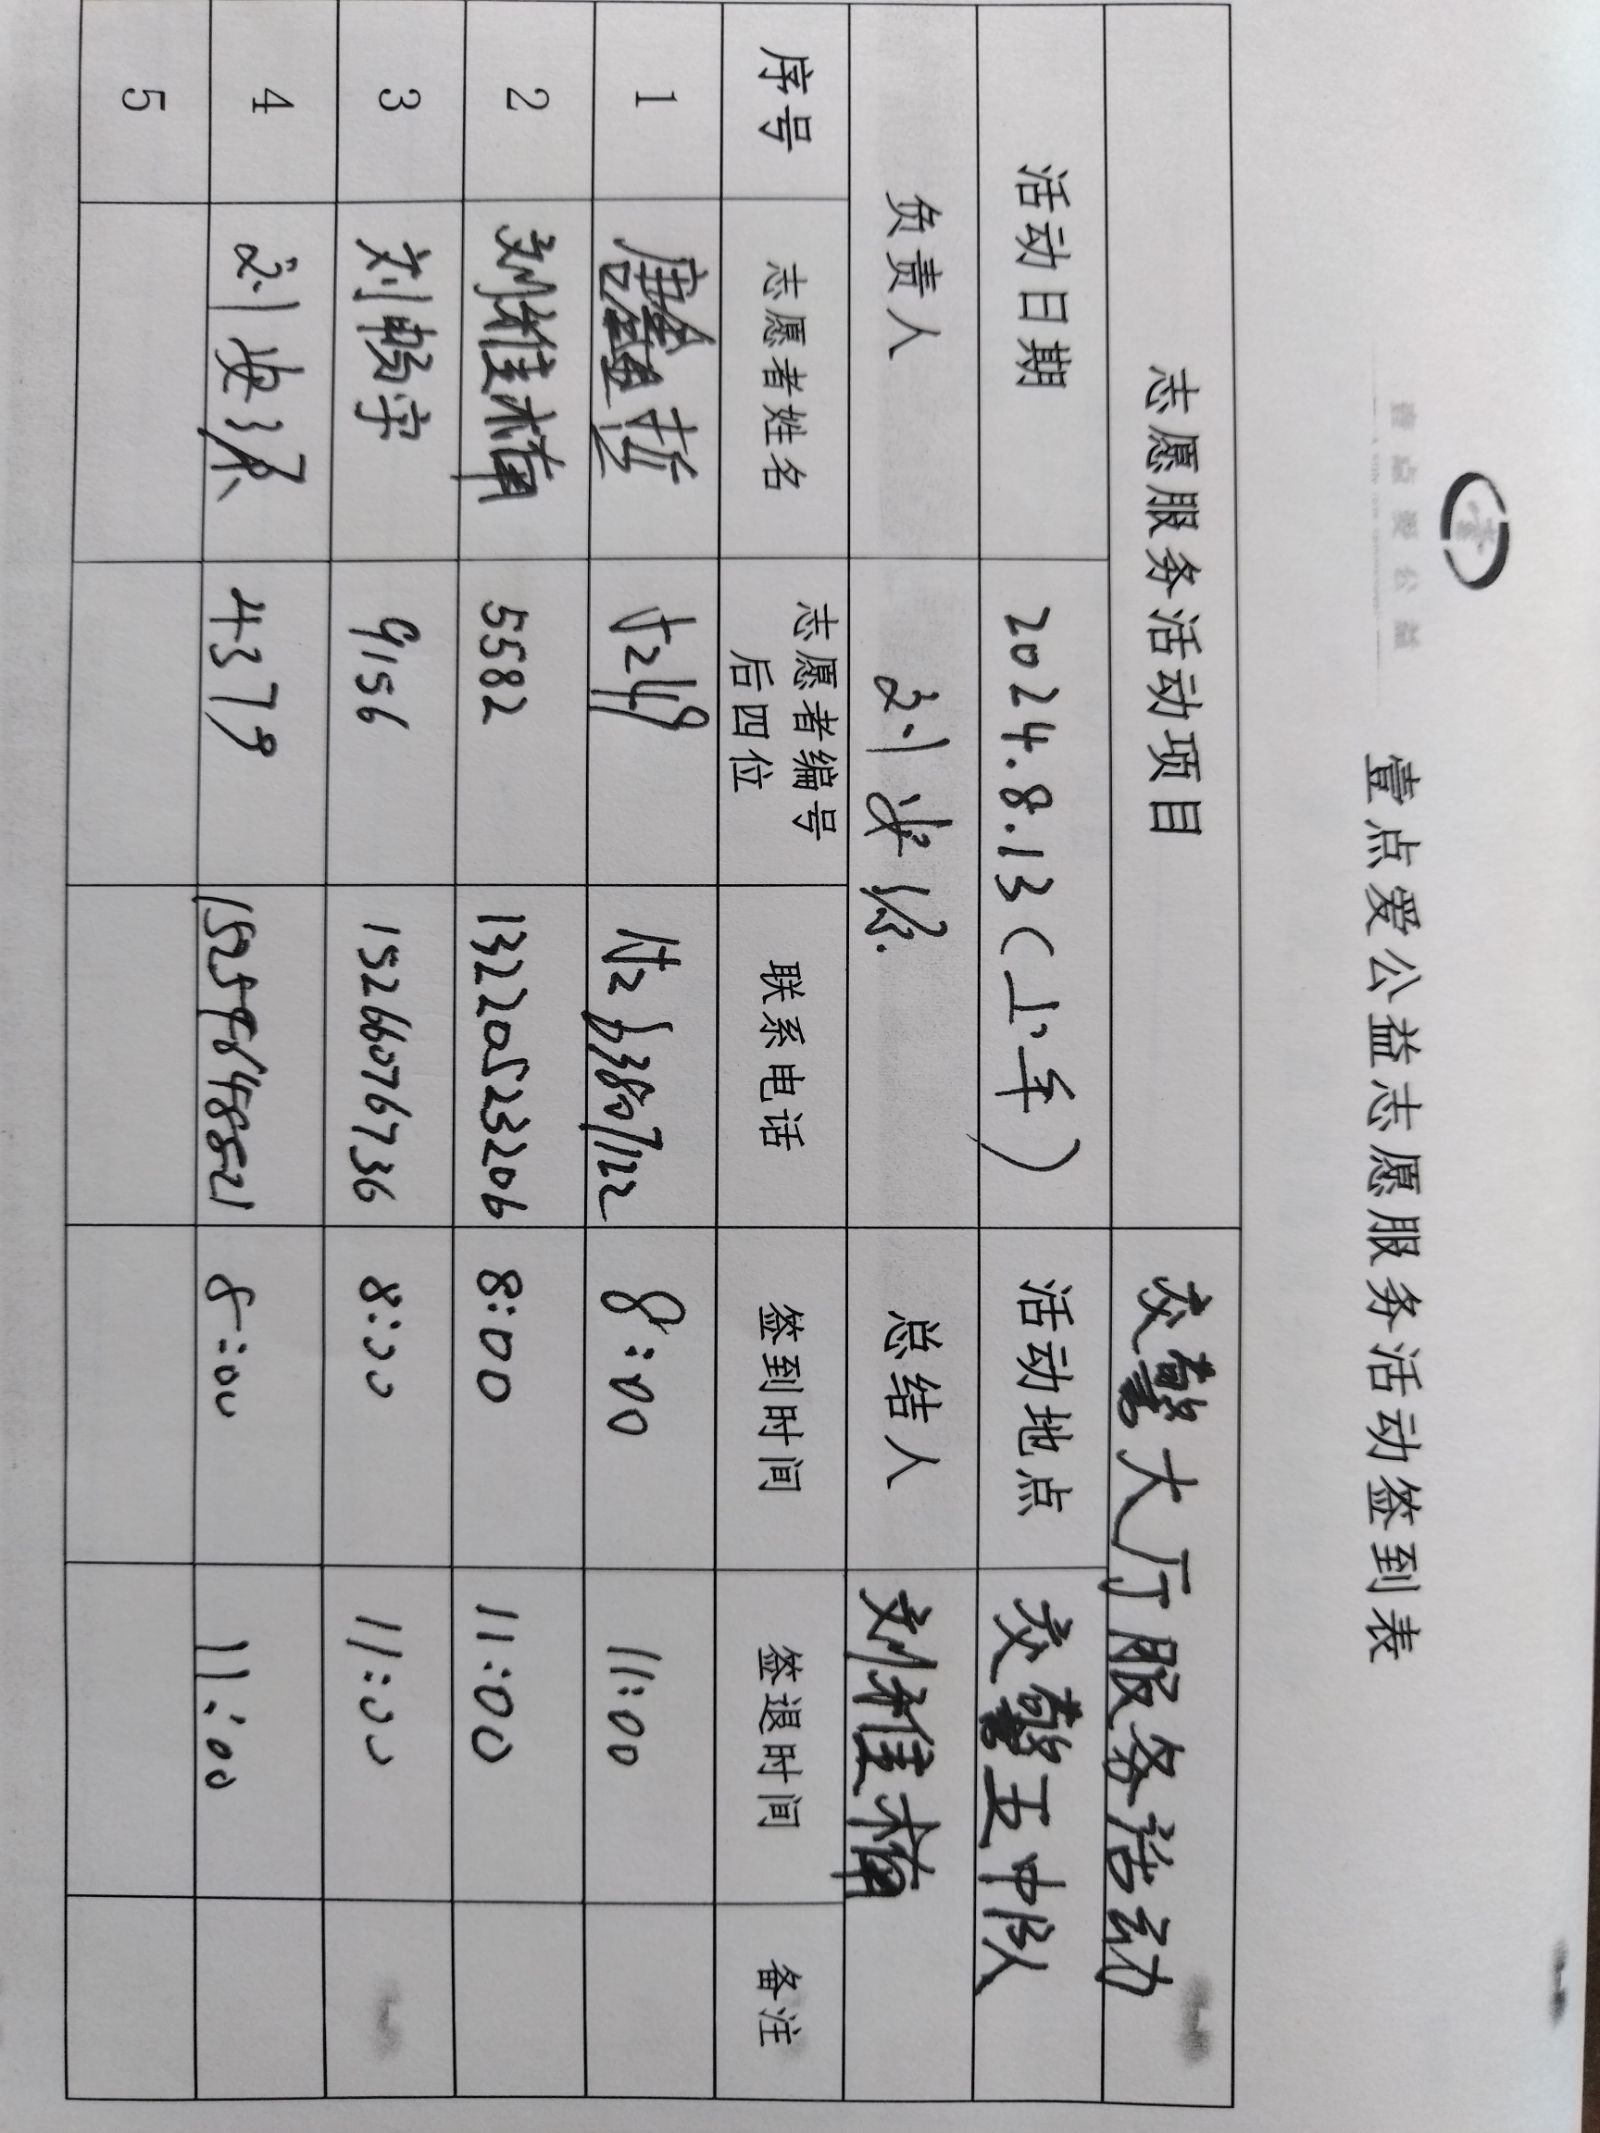 壹点爱公益
壹点爱公益志愿服务活动签到表
志愿服务活动项目 交警大厅服务活动
活动日期 2024.8.13(上午) 活动地点 交警五中队
负责人 刘 总结人 刘雅楠
序号 志愿者姓名 志愿者编号后四位 联系电话 签到时间 签退时间 备注
1 5249 8:00 11:00
2 刘雅楠 5582 13220523206 8:00 11:00
3 刘畅宇 9156 15266076736 8:00 11:00
4 刘 4379 8:00 11:00
5